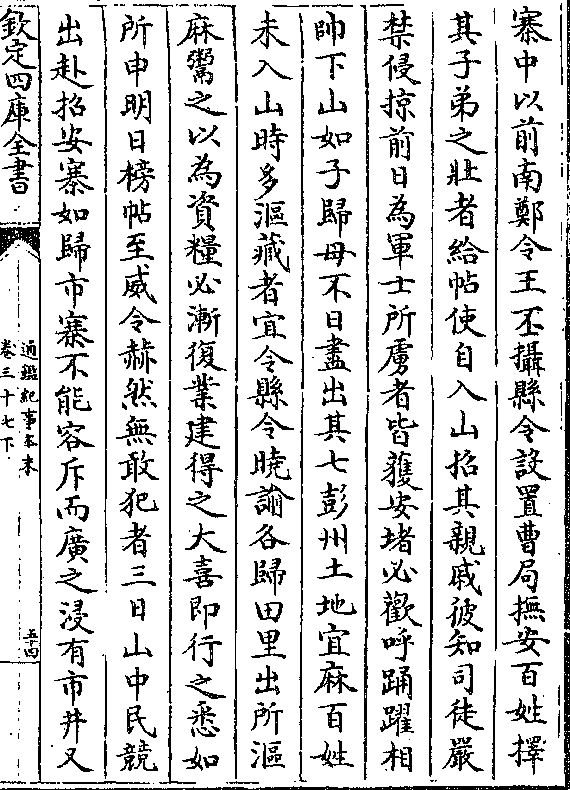 寨中以前南鄭令王丕攝縣令設置曹局撫安百姓擇
其子弟之壯者給帖使自入山招其親戚彼知司徒嚴
禁侵掠前日為軍士所虜者皆獲安堵必歡呼踴躍相
帥下山如子歸母不日盡出其七彭州土地宜麻百姓
未入山時多漚藏者宜令縣令曉諭各歸田里出所漚
麻鬻之以為資糧必漸復業建得之大喜即行之悉如
所申明日榜帖至威令赫然無敢犯者三日山中民競
出赴招安寨如歸市寨不能容斥而廣之浸有市井又
欽定四庫全書
通鑑紀事本末
卷三十七下
五十四